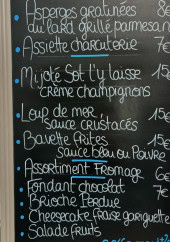 • Asperges gratinées 8€
au lard grillé parmesan
• Assiette charcuterie 7€
• Mijoté Sot l'y laisse 15€
crème champignons
• Loup de mer, 15€
sauce crustacés
• Bavette frites 15€
sauce bleu ou Poivre
• Assortiment Fromage 6€
• Fondant chocolat 7€
• Brioche Perdue
• Cheesecake fraise gariguette
• Salade fruits